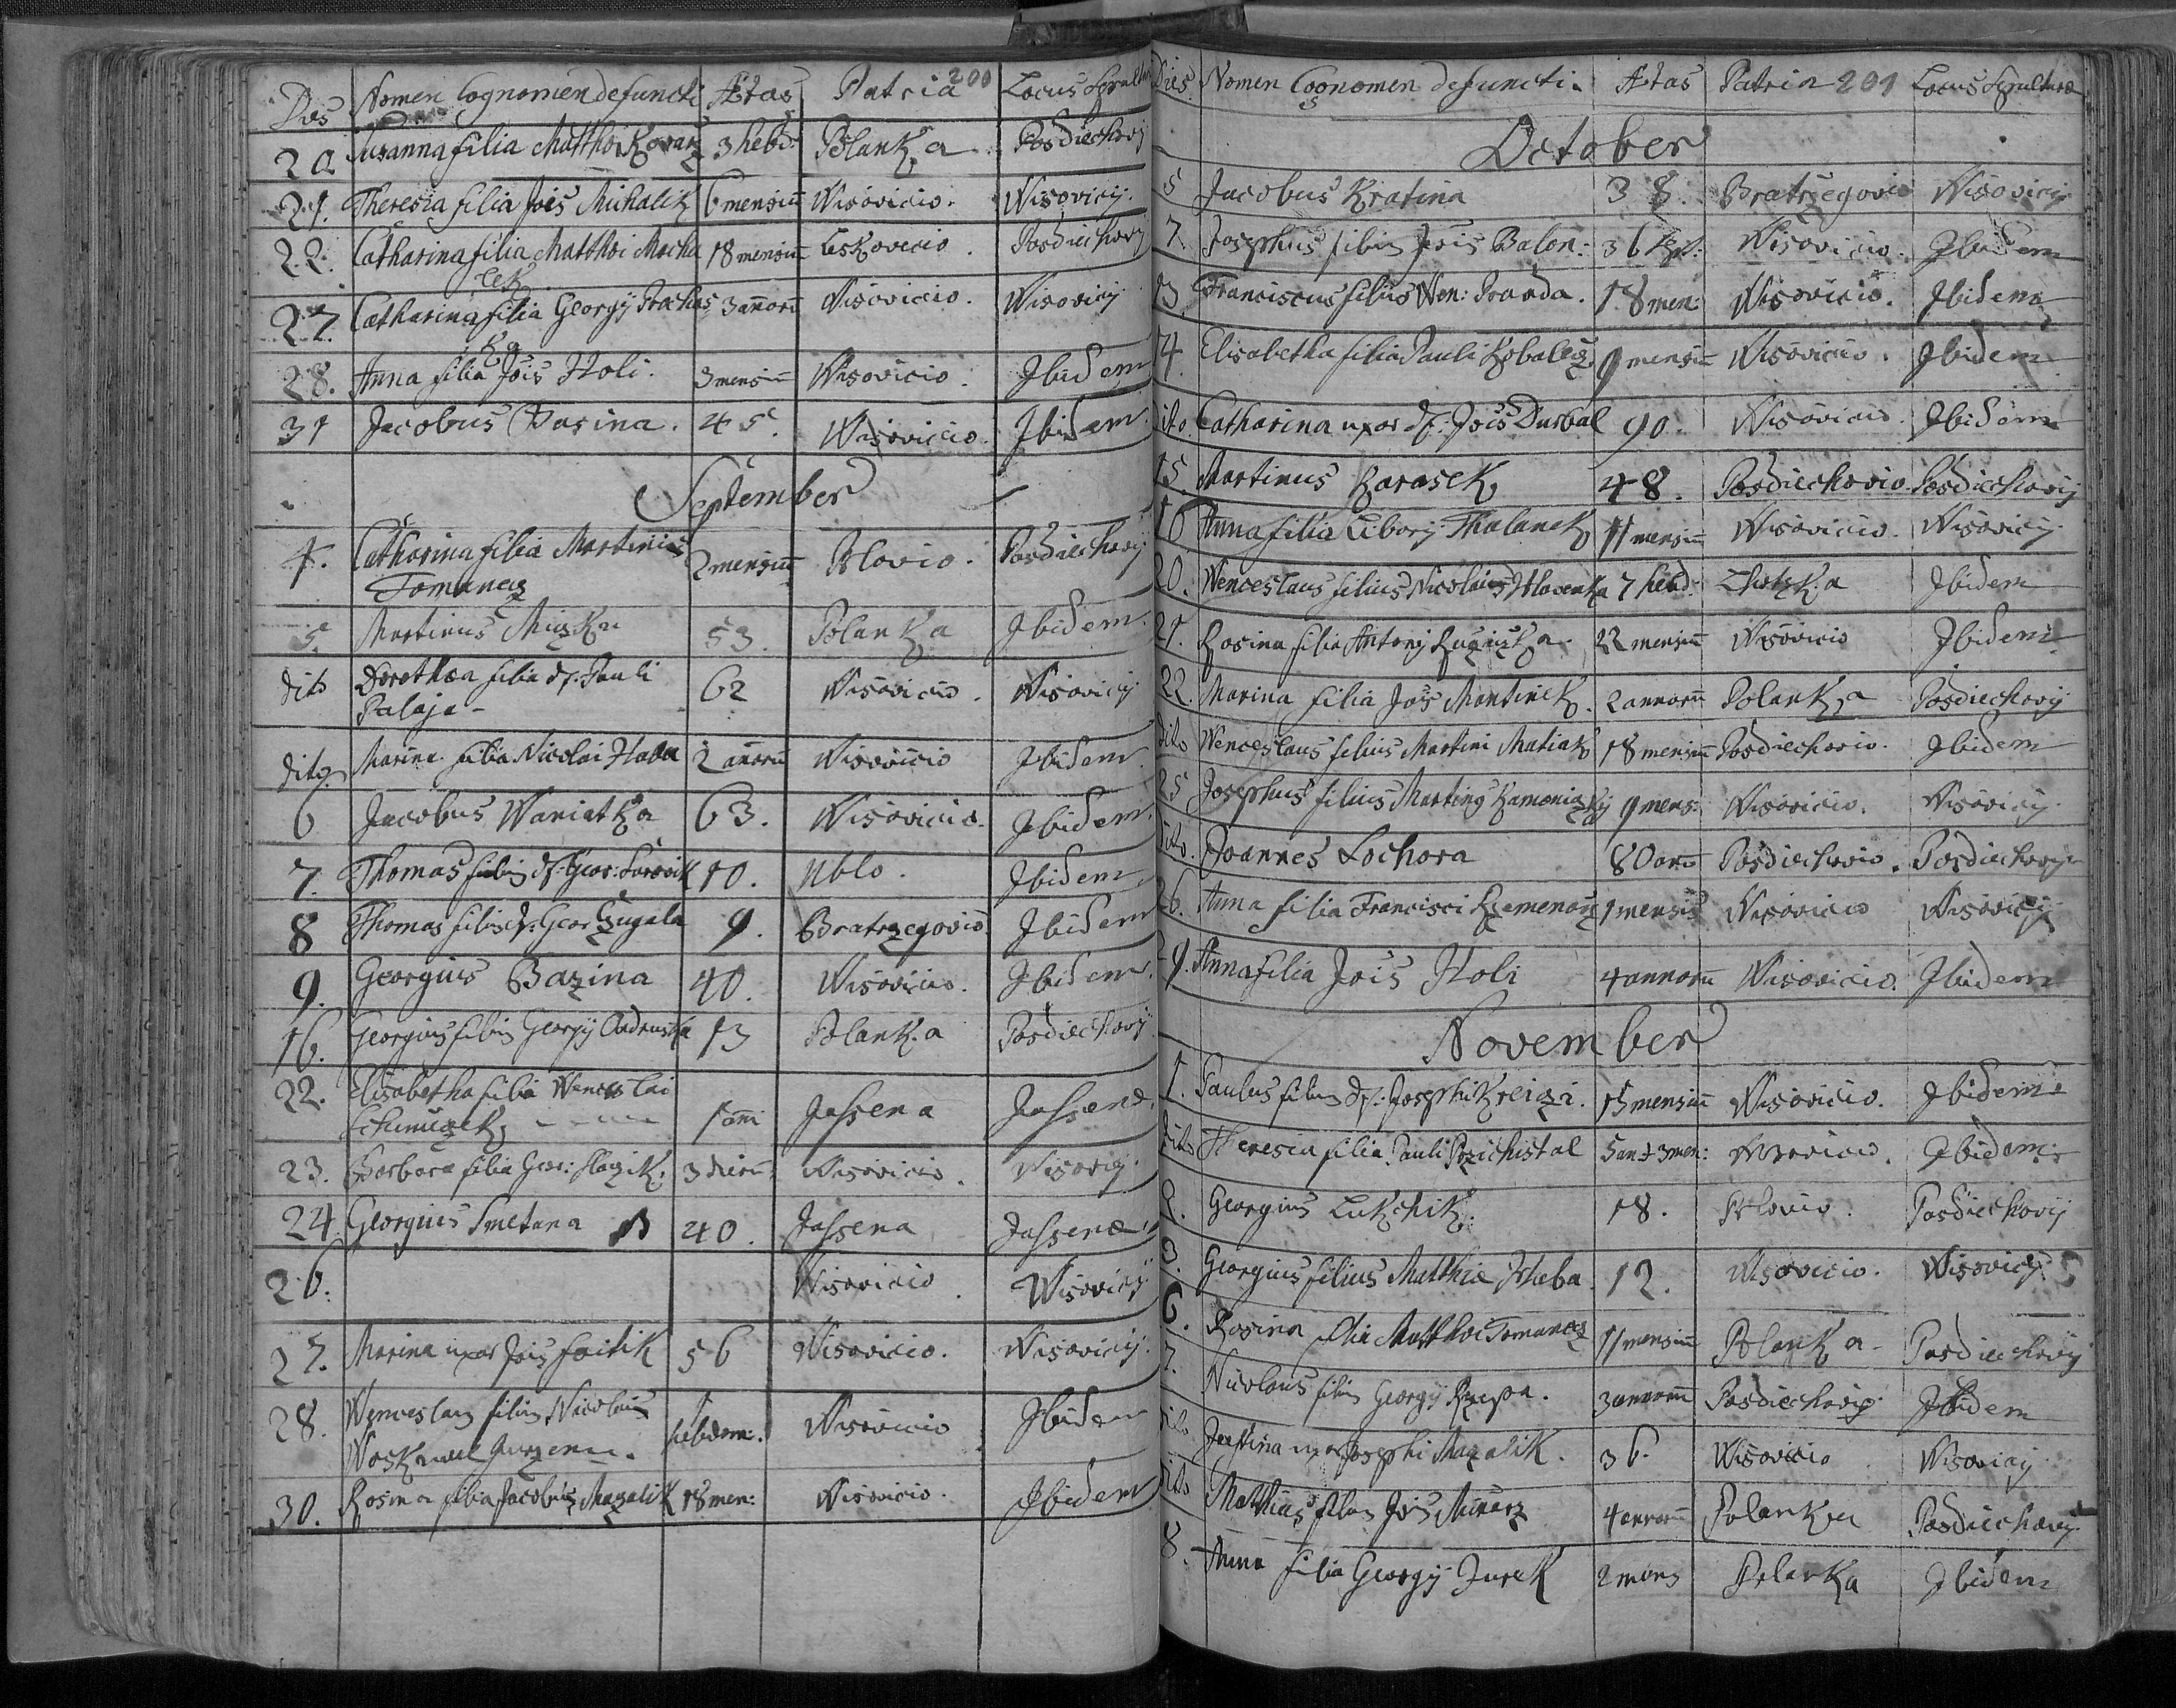 Dies Nomen Cognomen defuncti Ætas Patria 200 Locus Sepultur
20 Susanna filia Matthæi Kovarz 3 hebd: Polanka Posdiechovij
21. Theresia filia Jõis Michalik 6 mensiũ Wisovicio. Wisovicij.
22. Catharina filia Matthæi Macha 18 mensiũ Leskovecio. Posdiechovij
lek
27. Catharina filia Georgij Prochas 3 añorũ Wisovicio. Wisovicij
ka
28. Anna filia Jõis Holi. 3 mensiũ Wisovicio. Ibidem
31 Jacobus Basina. 45. Wisovicio. Ibidem.
September
4. Catharina filia Martini 2 mensiũ Hlovio. Posdiechovij
Tomanecz
5. Martinus Miczka 53. Polanka Ibidem.
dito Dorothea filia df. Pauli 62 Wisovicio. Wisovicij
Palaja
dito Marina filia Nicolai Haba 2 añorũ Wisovicio Ibidem
6 Jacobus Waniatka 63. Wisovicio. Ibidem.
7. Thomas filius df. Geor: 10. Ublo. Ibidem
8 Thomas filius df. Geor Czugala 9. Bratrzegovio Ibidem
9. Georgius Bazina 40. Wisovicio. Ibidem.
16. Georgius filius Georgij Ondruska 13 Polanka Posdiechovij
22. Elisabetha filia Wenceslai
1 añi Jassena Jassenæ
23. Barbara filia Geor: Slazik. 3 dierũ Wisovicio. Wisovicij.
24. Georgius Smetana 40. Jassena Jassenæ
26. Wisovicio. Wisovicij
27. Marina uxor Jõis Foitik 56 Wisovicio. Wisovicij.
28. Wenceslaus filius Nicolai 1 hebdom: Wisovicio Ibidem
30. Rosina filia Jacobi Mazalik 18 men: Wisovicio. Ibidem
Dies Nomen Cognomen defuncti. Ætas Patria 201 Locus Sepulturæ
October
5 Jacobus Kratina 38. Bratrzegovio Wisovicij
7. Josephus filius Jõis Balon: 36 Wisovicio. Ibidem
13 Franciscus filius Wen: Pranda. 18 men: Wisovicio. Ibidem
14. Elisabetha filia Pauli 9 mensiũ Wisovicio. Ibidem
dito. Catharina uxor df: Jõis Dursal 90. Wisovicio. Ibidem
15. Martinus Karasek 48. Posdiechovio. Posdiechovij
16 Anna filia Liborij Thalanek 11 mensiũ Wisovicio. Wisovicij.
20. Wenceslaus filius Nicolai Hlavenka 7 hebd: Lhotska Ibidem
21. Rosina filia Antonij Ruziczka. 22 mensiũ Wisovicio Ibidem
22. Marina filia Jõis Martinek. 2 annorũ Polanka Posdiechovij
dito Wenceslaus filius Martini Matiak 18 mensiũ Posdiechovio. Ibidem
25 Josephus filius Martini 9 mens: Wisovicio. Wisovicij.
dito. Joannes Lochora 80 ano Posdiechovio. Posdiechovij
26. Anna filia Francisci Rzemenarz 1 mensis Wisovicio Wisovicij
29. Anna filia Jõis Holi 4 annorũ Wisovicio. Ibidem
November
1. Paulus filius df: Josephi Kreiczi. 15 mensiũ Wisovicio. Ibidem
dito Theresia filia Pauli Przichistal 5 an et 3 men: Wisovicio. Ibidem
2. Georgius Lukchik. 18. Hlovio. Posdiechovij
3. Georgius filius Matthiæ Haba 12. Wisovicio. Wisovicij
6. Rosina filia Matthæi Tomanecz 11 mensiũ Polanka Posdiechovij
7. Nicolaus filius Georgij Rzepa. 3 annorũ Posdiechovio. Ibidem
dito Justina uxor Josephi Mazalik. 36. Wisovicio Wisovicij
dito Matthias filius Jõis Minarz 4 annorũ Polanka Posdiechovij
8. Anna filia Georgij Jurek 2 mens Polanka Ibidem